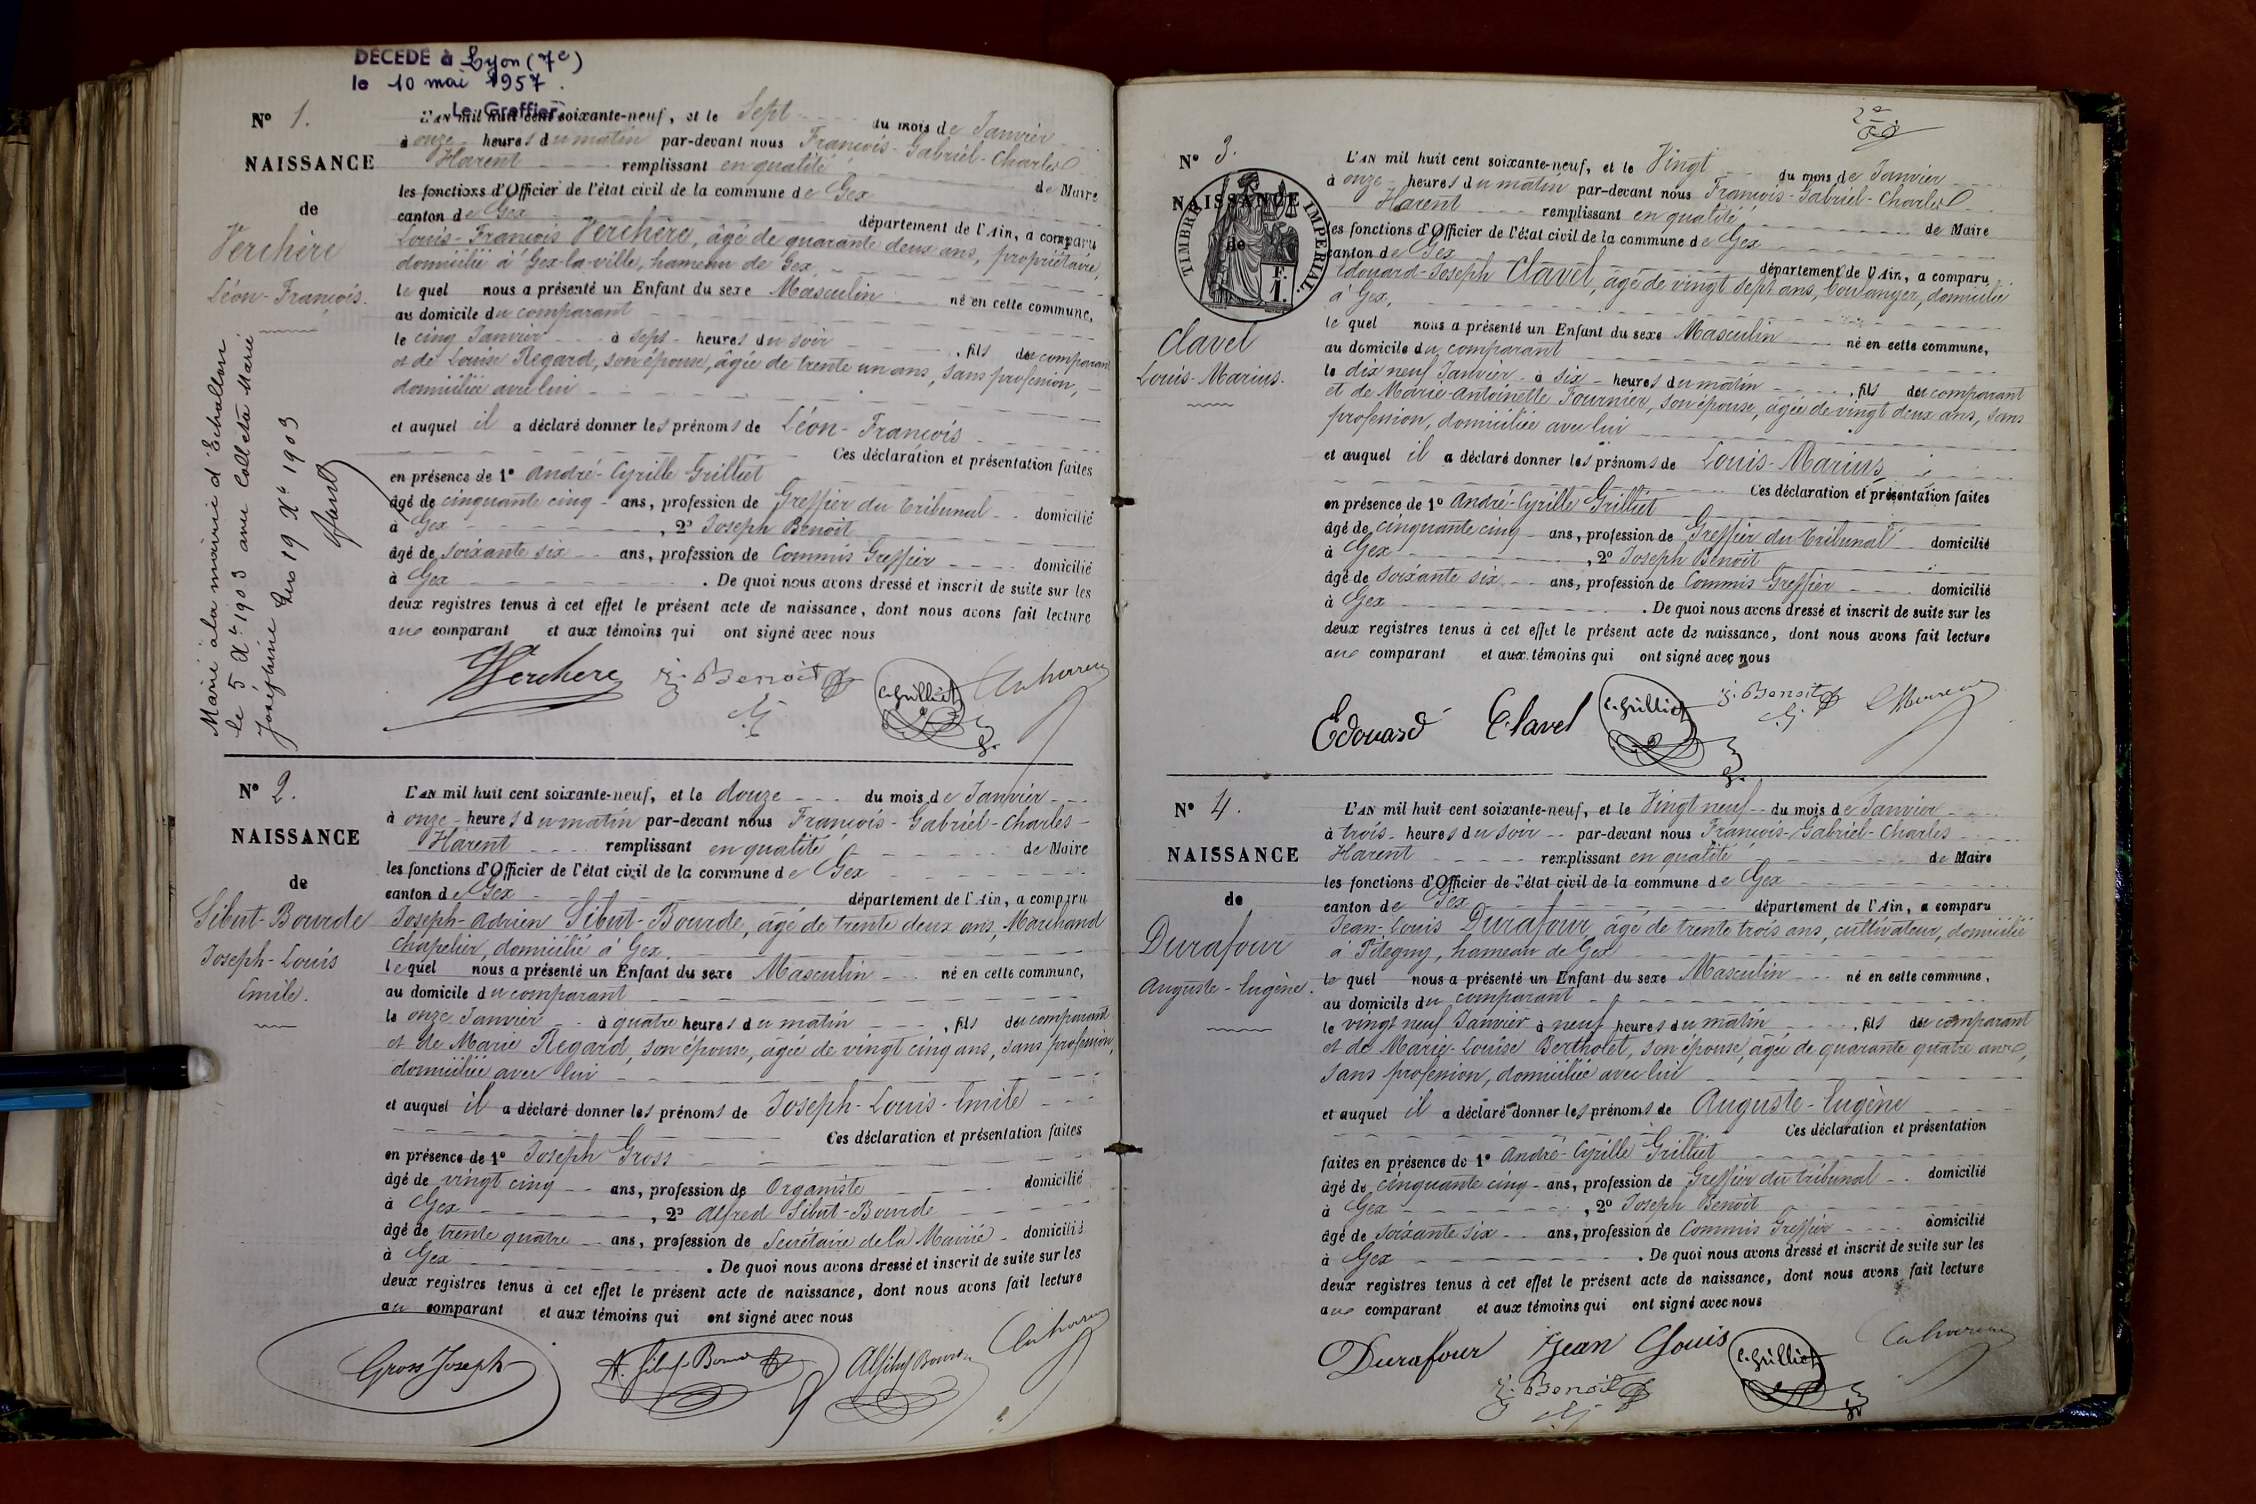 DÉCÉDÉ à Lyon (7e)
le 10 mai 1957.
Le Greffier
N° 1.
NAISSANCE
de
Verchère
Léon-François.
Marié à la mairie d'Echallon
le 5 Xbre 1903 avec Colletta Marie
Joséphine
19 Xbre 1903
L'AN mil huit cent soixante-neuf, et le Sept du mois de Janvier
à onze heures du matin par-devant nous François-Gabriel-Charles
Harent remplissant en qualité de Maire
les fonctions d'Officier de l'état civil de la commune de Gex
canton de Gex département de l'Ain, a comparu
Louis-François Verchère, âgé de quarante deux ans, propriétaire,
domicilié à Gex-la-ville, hameau de Gex,
lequel nous a présenté un Enfant du sexe Masculin né en cette commune,
au domicile du comparant
le cinq Janvier à sept heures du soir, fils du comparant
et de Louise Regard, son épouse, âgée de trente un ans, sans profession,
domiciliée avec lui
et auquel il a déclaré donner les prénoms de Léon-François
Ces déclaration et présentation faites
en présence de 1° André-Cyrille Grilliet
âgé de cinquante cinq ans, profession de Greffier du tribunal domicilié
à Gex, 2° Joseph Benoit
âgé de soixante six ans, profession de Commis Greffier domicilié
à Gex. De quoi nous avons dressé et inscrit de suite sur les
deux registres tenus à cet effet le présent acte de naissance, dont nous avons fait lecture
au comparant et aux témoins qui ont signé avec nous
Verchere J. Benoit C. Grilliet
N° 2.
NAISSANCE
de
Sibut-Bourde
Joseph-Louis
Emile.
L'AN mil huit cent soixante-neuf, et le douze du mois de Janvier
à onze heures du matin par-devant nous François-Gabriel-Charles
Harent remplissant en qualité de Maire
les fonctions d'Officier de l'état civil de la commune de Gex
canton de Gex département de l'Ain, a comparu
Joseph-Adrien Sibut-Bourde, âgé de trente deux ans, Marchand
chapelier, domicilié à Gex.
lequel nous a présenté un Enfant du sexe Masculin né en cette commune,
au domicile du comparant
le onze Janvier à quatre heures du matin, fils du comparant
et de Marie Regard, son épouse, âgée de vingt cinq ans, sans profession,
domiciliée avec lui
et auquel il a déclaré donner les prénoms de Joseph-Louis-Emile
Ces déclaration et présentation faites
en présence de 1° Joseph Gross
âgé de vingt cinq ans, profession de Organiste domicilié
à Gex, 2° Alfred Sibut-Bourde
âgé de trente quatre ans, profession de Secrétaire de la Mairie domicilié
à Gex. De quoi nous avons dressé et inscrit de suite sur les
deux registres tenus à cet effet le présent acte de naissance, dont nous avons fait lecture
au comparant et aux témoins qui ont signé avec nous
Gross Joseph A. Sibut-Bourde A Sibut Bourde
N° 3.
NAISSANCE
de
TIMBRE IMPERIAL.
Clavel
Louis-Marius.
L'AN mil huit cent soixante-neuf, et le Vingt du mois de Janvier
à onze heures du matin par-devant nous François-Gabriel-Charles
Harent remplissant en qualité de Maire
les fonctions d'Officier de l'état civil de la commune de Gex
canton de Gex département de l'Ain, a comparu
Edouard-Joseph Clavel, âgé de vingt sept ans, boulanger, domicilié
à Gex,
lequel nous a présenté un Enfant du sexe Masculin né en cette commune,
au domicile du comparant
le dix neuf Janvier à six heures du matin, fils du comparant
et de Marie-Antoinette Fournier, son épouse, âgée de vingt deux ans, sans
profession, domiciliée avec lui
et auquel il a déclaré donner les prénoms de Louis-Marius
Ces déclaration et présentation faites
en présence de 1° André-Cyrille Grilliet
âgé de cinquante cinq ans, profession de Greffier du tribunal domicilié
à Gex, 2° Joseph Benoit
âgé de soixante six ans, profession de Commis Greffier domicilié
à Gex. De quoi nous avons dressé et inscrit de suite sur les
deux registres tenus à cet effet le présent acte de naissance, dont nous avons fait lecture
au comparant et aux témoins qui ont signé avec nous
Edouard Clavel C. Grilliet J. Benoit
N° 4.
NAISSANCE
de
Durafour
Auguste-Eugène.
L'AN mil huit cent soixante-neuf, et le Vingt neuf du mois de Janvier
à trois heures du soir par-devant nous François-Gabriel-Charles
Harent remplissant en qualité de Maire
les fonctions d'Officier de l'état civil de la commune de Gex
canton de Gex département de l'Ain, a comparu
Jean-Louis Durafour, âgé de trente trois ans, cultivateur, domicilié
à Pitegny, hameau de Gex
lequel nous a présenté un Enfant du sexe Masculin né en cette commune,
au domicile du comparant
le vingt neuf Janvier à neuf heures du matin, fils du comparant
et de Marie-Louise Bertholet, son épouse, âgée de quarante quatre ans,
sans profession, domiciliée avec lui
et auquel il a déclaré donner les prénoms de Auguste-Eugène
Ces déclaration et présentation
faites en présence de 1° André-Cyrille Grilliet
âgé de cinquante cinq ans, profession de Greffier du tribunal domicilié
à Gex, 2° Joseph Benoit
âgé de soixante six ans, profession de Commis Greffier domicilié
à Gex. De quoi nous avons dressé et inscrit de suite sur les
deux registres tenus à cet effet le présent acte de naissance, dont nous avons fait lecture
au comparant et aux témoins qui ont signé avec nous
Durafour Jean Louis C. Grilliet
J. Benoit